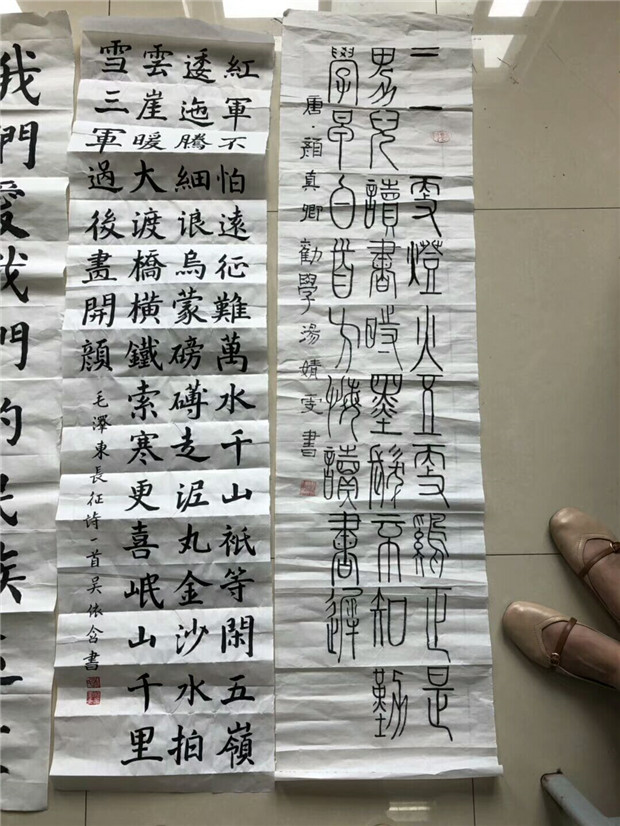 三更燈火五更鷄正是
男兒讀書時墨髮不知勤
學早白首方悔讀書遲
唐·顏真卿勸學湯婧雯書
紅軍不怕遠征難萬水千山祇等閑五嶺
逶迤騰細浪烏蒙磅礴走泥丸金沙水拍
雲崖暖大渡橋橫鐵索寒更喜岷山千里
雪三軍過後盡開顏
毛澤東長征詩一首吴依含書
我們愛我們的民族